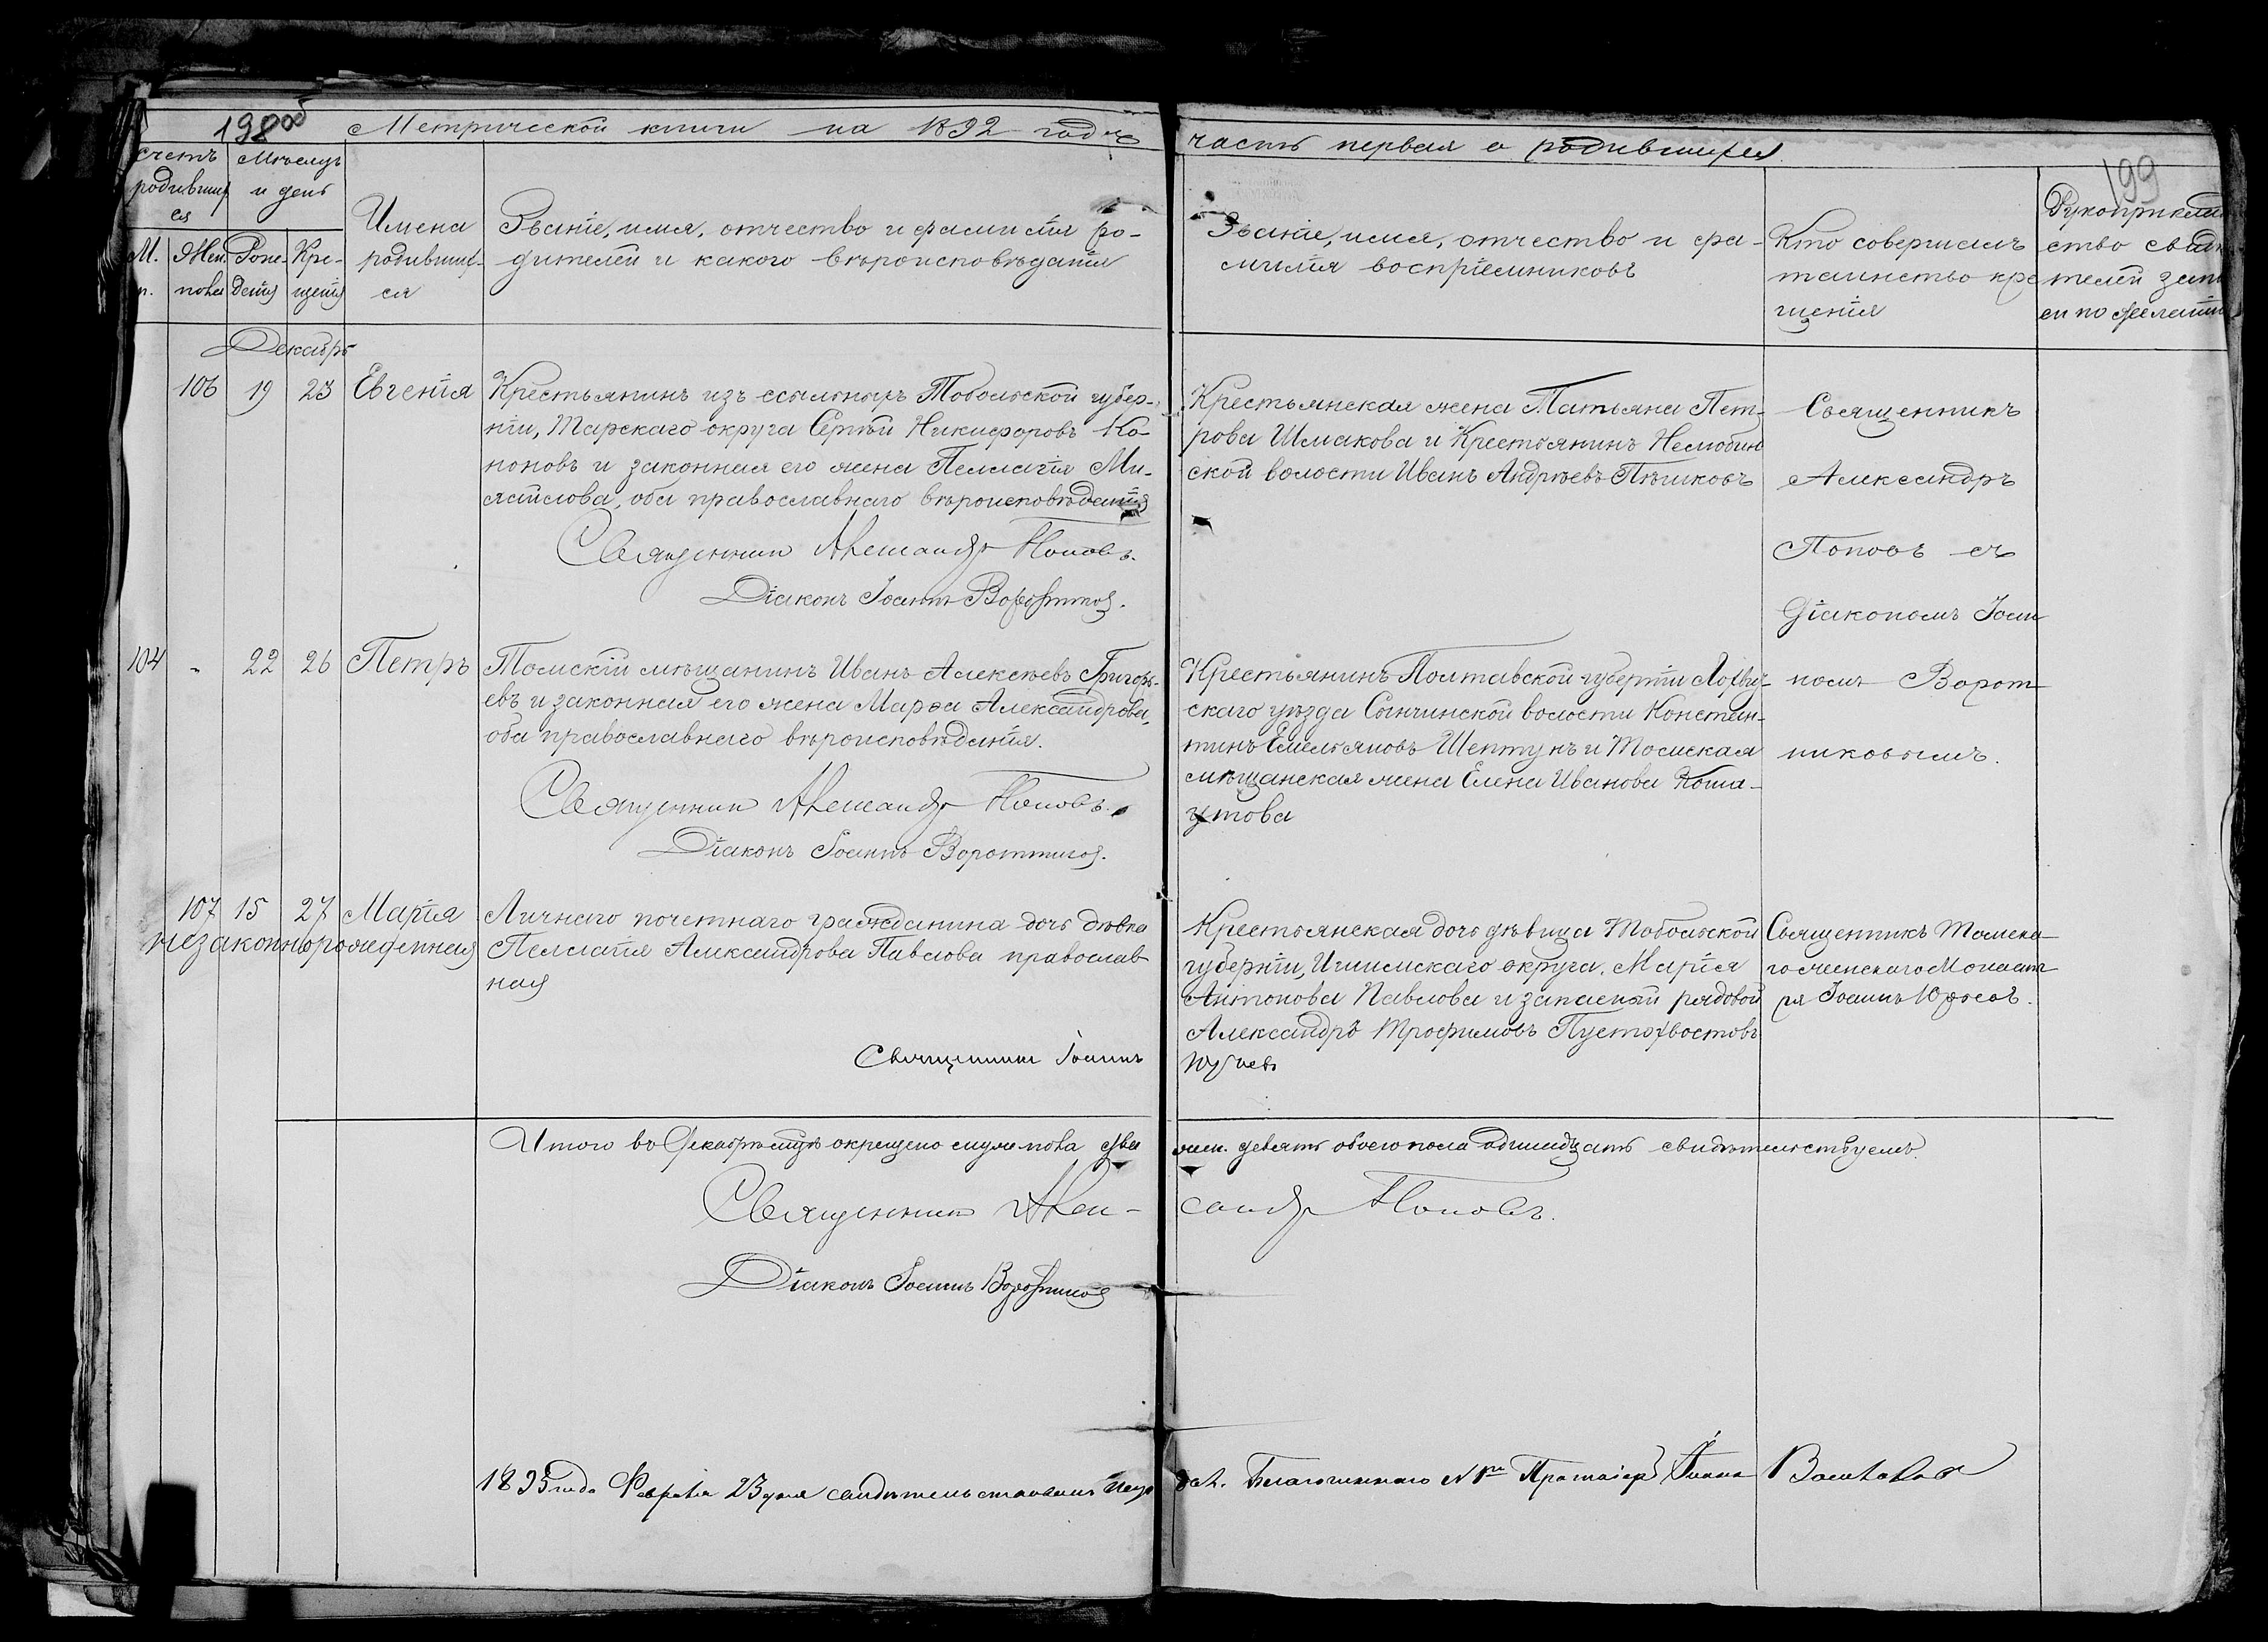 198об
Метрической книги на 1892 годъ
часть первая о родившихся
199
счетъ родившихся
Мѣсяцъ и день
М. п.
Жен. пола
Рожденія
Крещенія
Имена
родившихся
Званіе, имя, отчество и фамилія ро-
дителей и какого вѣроисповѣданія
Званіе, имя, отчество и фа-
милія воспріемниковъ
Кто совершалъ
таинство кре
щенія
Рукоприклад
ство свидѣ
телей запи
си по желанію
Декабрь
106 19 23 Евгенія
Крестьянинъ изъ ссыльныхъ Тобольской губер-
ніи, Тарскаго округа Сергѣй Никифоровъ Ко-
ноновъ и законная его жена Пеллагія Ми-
хайлова, оба православнаго вѣроисповѣданія
Священникъ Александръ Поповъ.
Діаконъ Іоаннъ Воротниковъ.
Крестьянская жена Татьяна Пет-
рова Шмакова и Крестьянинъ Нелюбин
ской волости Иванъ Андреевъ Пѣшковъ
Священникъ
Александръ
Поповъ съ
Діакономъ Іоан
номъ Ворот
никовымъ.
104 " 22 26 Петръ
Томскій мѣщанинъ Иванъ Алексѣевъ Григорь-
евъ и законная его жена Марѳа Александрова,
оба православнаго вѣроисповѣданія.
Священникъ Александръ Поповъ.
Діаконъ Іоаннъ Воротниковъ.
Крестьянинъ Полтавской губерніи Лохвиц-
скаго уѣзда Сѣнчинской волости Констан-
тинъ Емельяновъ Шептунъ и Томская
мѣщанская жена Елена Иванова Коша-
утова
107 15 27 Марія
незаконнорожденная
Личнаго почетнаго гражданина дочь дѣвка
Пеллагія Александрова Павлова православ
ная
Священникъ Іоаннъ
Крестьянская дочь дѣвица Тобольской
губерніи, Ишимскаго округа, Марія
Антонова Павлова и запасный рядовой
Александръ Трофимовъ Пустохвостовъ
Священникъ Томска
го женскаго Монаст
ря Іоаннъ
Итого въ Декабрѣ мцѣ окрещено муж. пола два
жен. девять обоего пола одинадцать свидѣтельствуемъ.
Священникъ Алек-
сандръ Поповъ.
Діаконъ Іоаннъ Воротниковъ
1893 года Февраля 23 дня свидѣтельствовалъ
Благочиннаго №1го Протоіерей